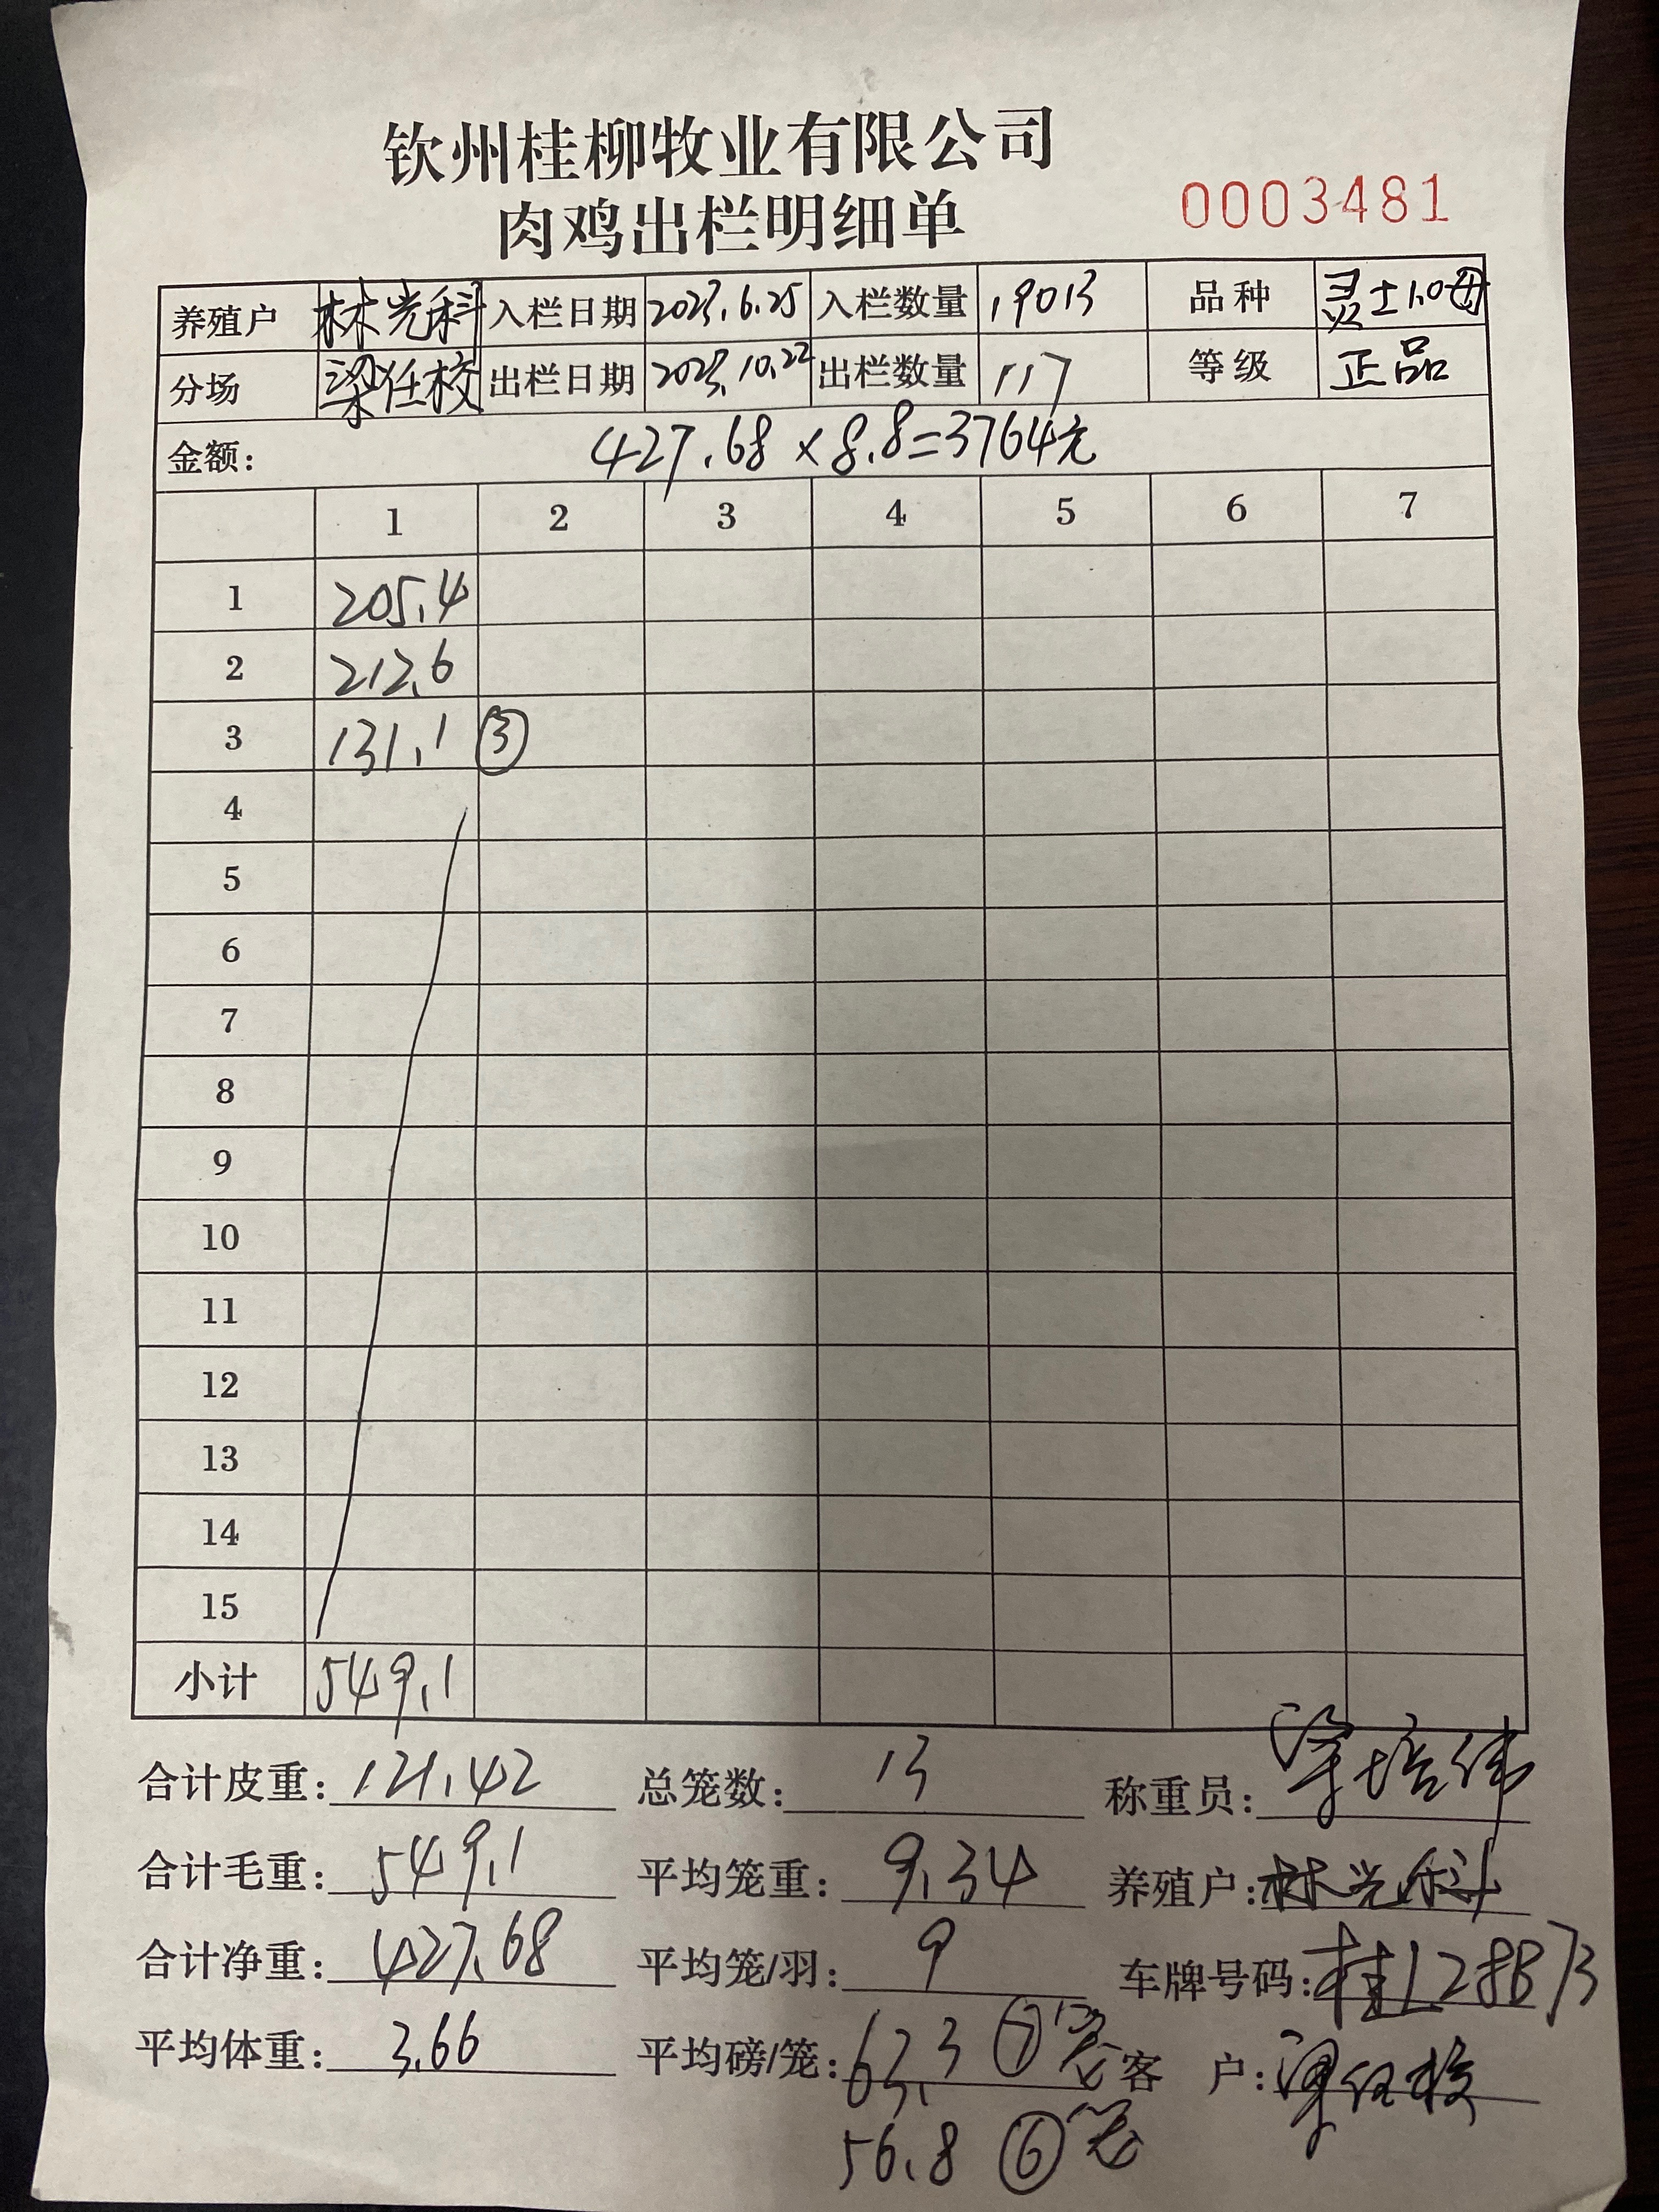 钦州桂柳牧业有限公司
肉鸡出栏明细单 0003481
养殖户 林光科 入栏日期 2023.6.25 入栏数量 19013 品种 灵土1.0母
分场 梁任校 出栏日期 2023.10.22 出栏数量 117 等级 正品
金额: 427.68×8.8=3764元
1 2 3 4 5 6 7
1 205.4
2 212.6
3 131.1 ③
4
5
6
7
8
9
10
11
12
13
14
15
小计 549.1
合计皮重: 121.42 总笼数: 13 称重员: 培伟
合计毛重: 549.1 平均笼重: 9.34 养殖户: 林光科
合计净重: 427.68 平均笼/羽: 9 车牌号码: 桂L28B73
平均体重: 3.66 平均磅/笼: 63.3 ⑦笼 客 户: 梁任校
56.8 ⑥笼